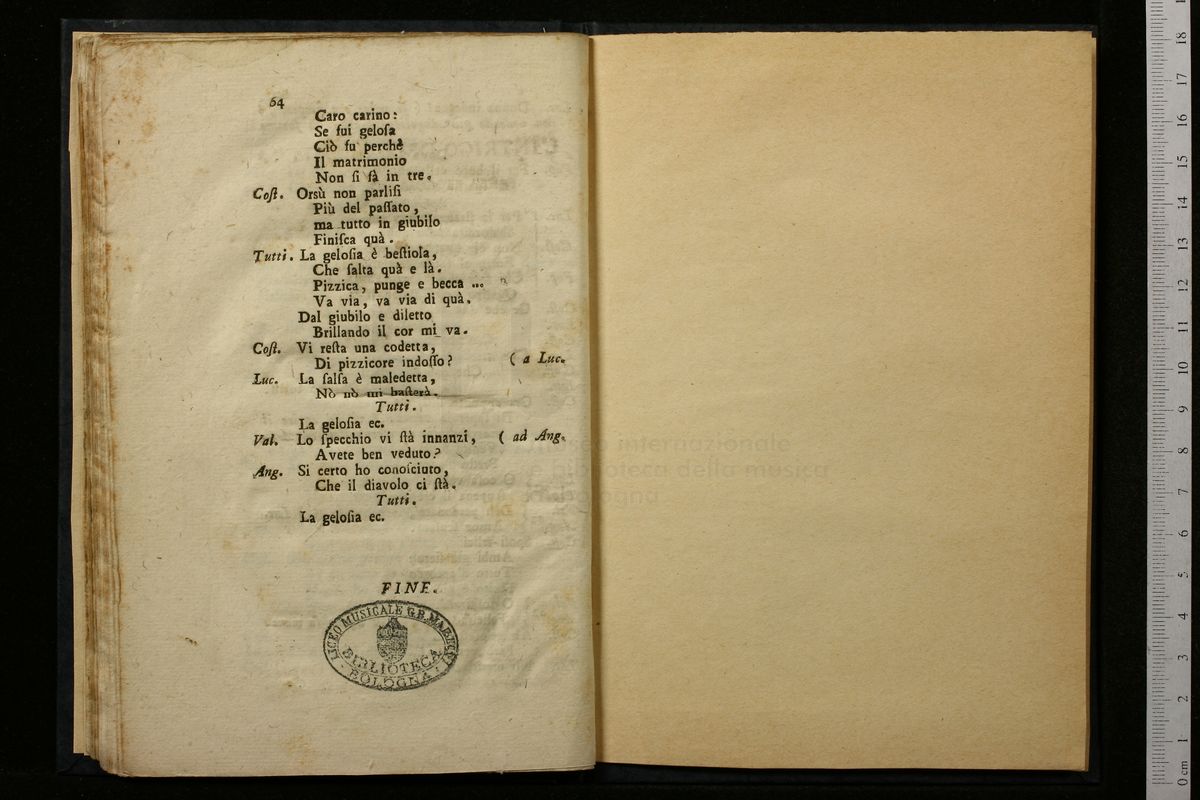 64
Caro carino:
Se fui geloſa
Ciò fu perchè
Il matrimonio
Non ſi ſà in tre.
Coſt. Orsù non parliſi
Più del paſſato,
ma tutto in giubilo
Finiſca quà.
Tutti. La geloſia è beſtiola,
Che ſalta quà e là.
Pizzica, punge e becca ...
Va via, va via di quà.
Dal giubilo e diletto
Brillando il cor mi va.
Coſt. Vi reſta una codetta,
Di pizzicore indoſſo? ( a Luc.
Luc. La ſalſa è maledetta,
Nò nò mi baſterà.
Tutti.
La geloſia ec.
Val. Lo ſpecchio vi ſtà innanzi, ( ad Ang.
Avete ben veduto?
Ang. Si certo ho conoſciuto,
Che il diavolo ci ſtà.
Tutti.
La geloſia ec.
FINE.
LICEO MUSICALE G.B. MARTINI
BIBLIOTECA
BOLOGNA
museo internazionale
e biblioteca della musica
di bologna
0 cm 1 2 3 4 5 6 7 8 9 10 11 12 13 14 15 16 17 18